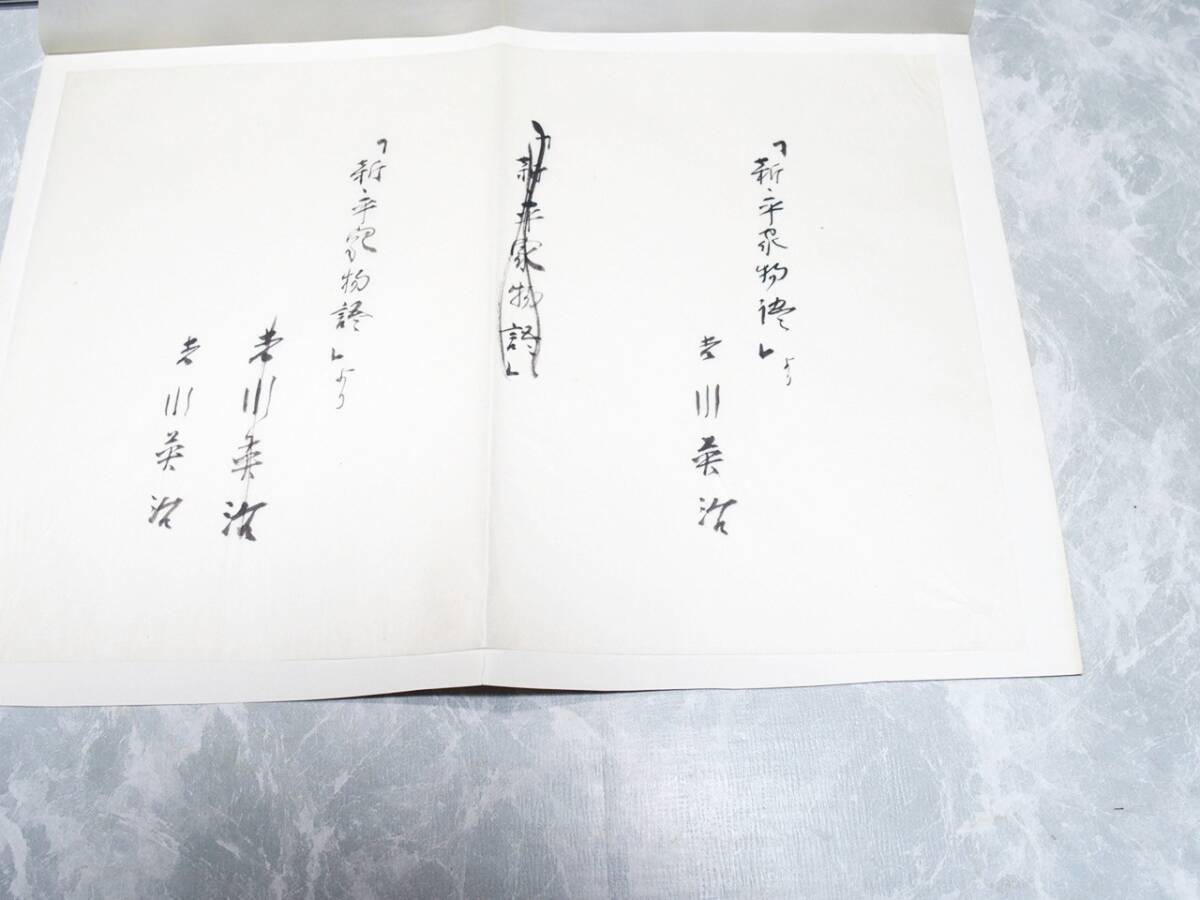 「新・平家物語」より
吉川英治
「新・平家物語」
「新・平家物語」より
吉川英治
吉川英治